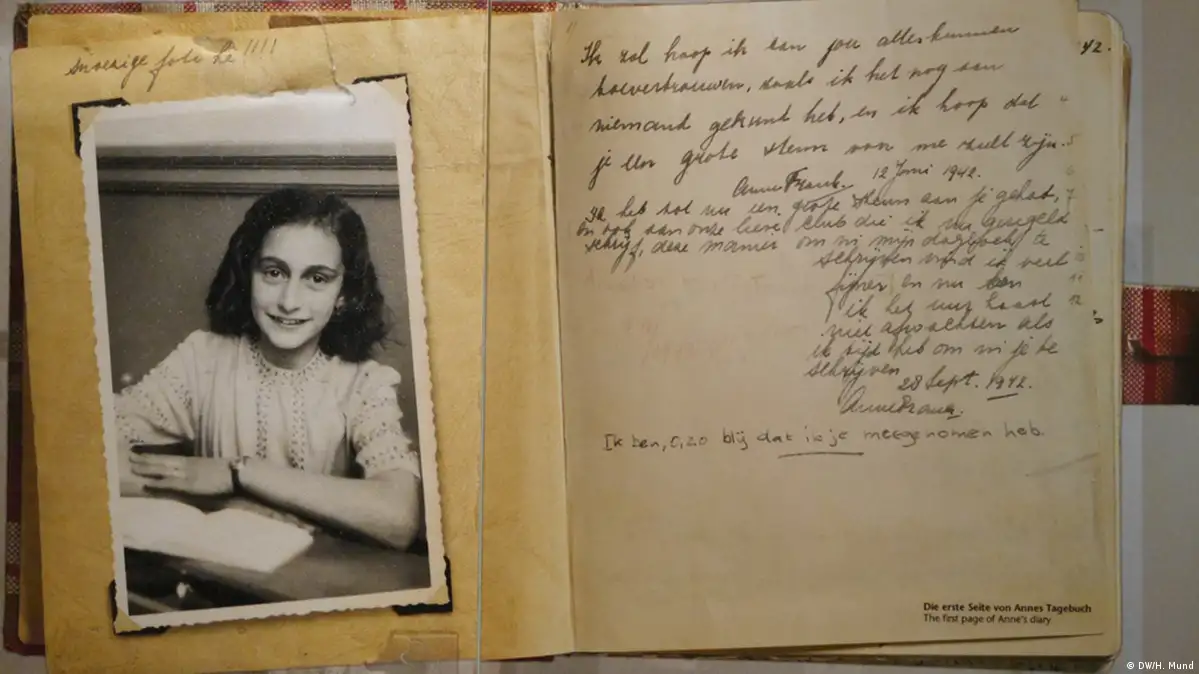 snoezige foto hè!!!!
42.
Ik zal hoop ik aan jou alles kunnen
toevertrouwen, zoals ik het nog aan
niemand gekund heb, en ik hoop dat
je een grote steun voor me zult zijn.
Anne Frank. 12 Juni 1942.
Ik heb tot nu een grote steun aan je gehad,
en ook aan onze lieve club die ik nu geregeld
schrijf, deze manier om in mijn dagboek te
schrijven vind ik veel
fijner en nu kan
ik het uur haast
niet afwachten als
ik tijd heb om in je te
schrijven
28 Sept. 1942.
Anne Frank.
Ik ben, O, zo blij dat ik je meegenomen heb.
Die erste Seite von Annes Tagebuch
The first page of Anne's diary
© DW/H. Mund